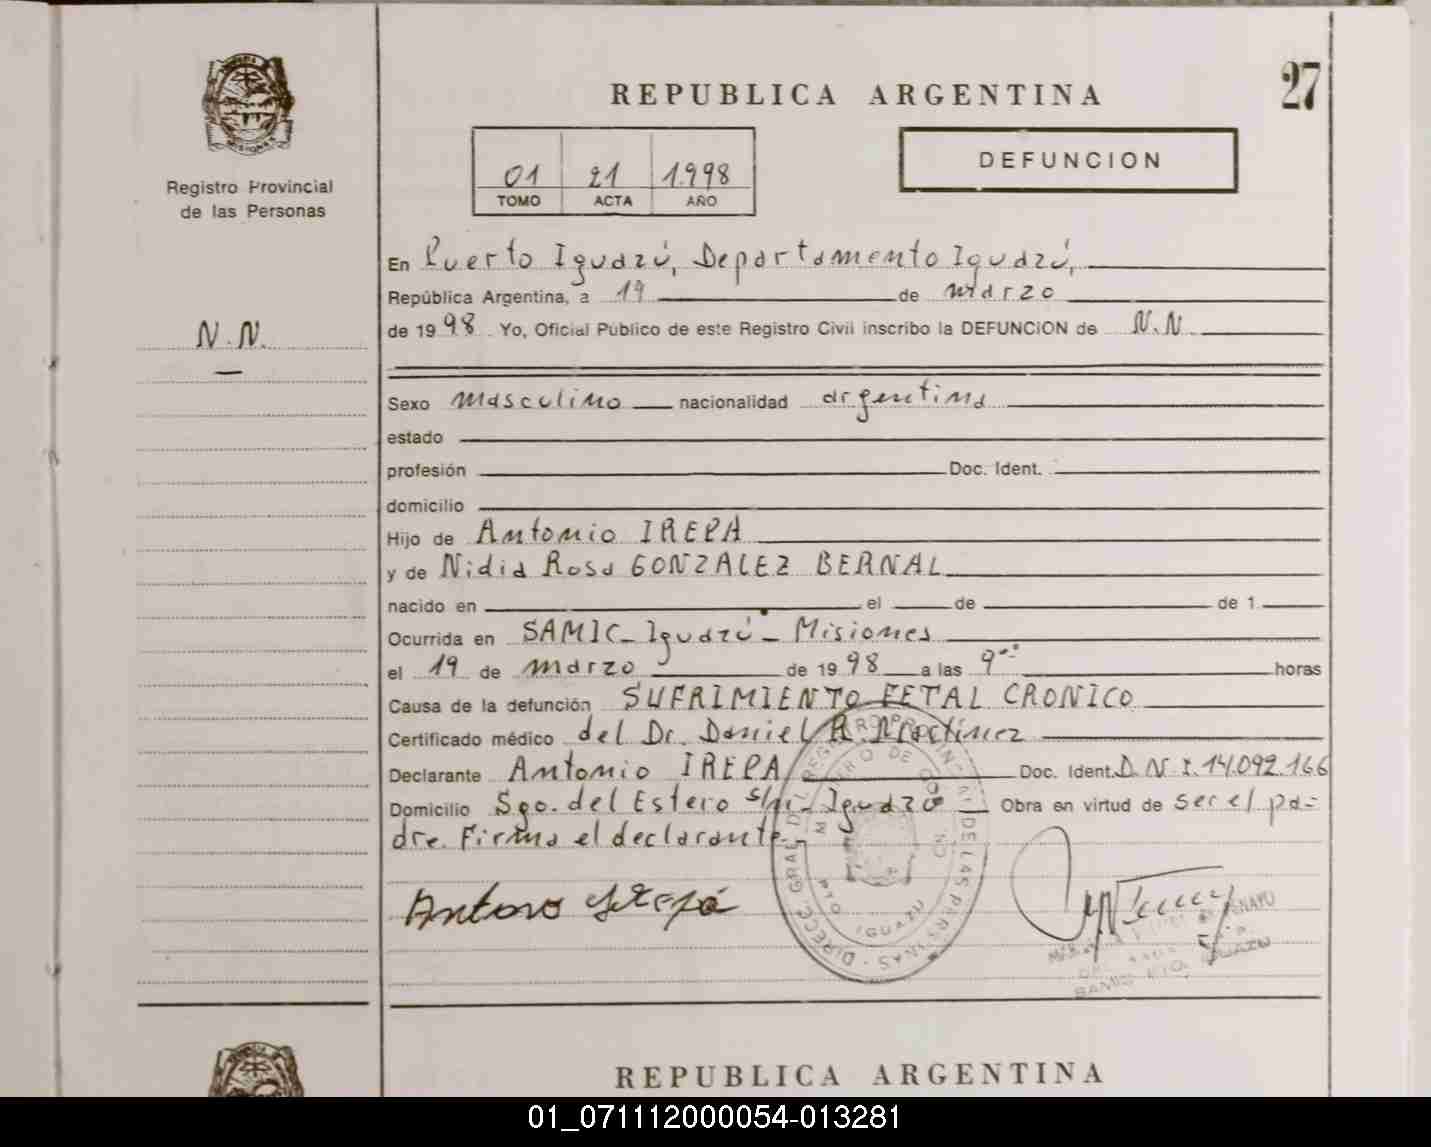 REPUBLICA ARGENTINA
27
DEFUNCION
01 21 1.998
TOMO ACTA AÑO
Registro Provincial
de las Personas
N.N.
En Puerto Iguazú, Departamento Iguazú,
República Argentina, a 19 de marzo
de 19 98. Yo, Oficial Público de este Registro Civil inscribo la DEFUNCION de N.N
Sexo masculino nacionalidad argentina
estado
profesión Doc. Ident.
domicilio
Hijo de Antonio IREPA
y de Nidia Rosa GONZALEZ BERNAL
nacido en el de de 1
Ocurrida en SAMIC - Iguazú - Misiones
el 19 de marzo de 19 98 a las 9 horas
Causa de la defunción SUFRIMIENTO FETAL CRONICO
Certificado médico del Dr. Daniel R. Martinez
Declarante Antonio IREPA Doc. Ident. D.N.I. 14.092.166
Domicilio Sgo. del Estero s/n - Iguazú Obra en virtud de ser el pa-
dre. Firma el declarante.-
DIRECC. GRAL. DEL REGISTRO PROVINCIAL DE LAS PERSONAS
IGUAZU
REPUBLICA ARGENTINA
01_071112000054-013281